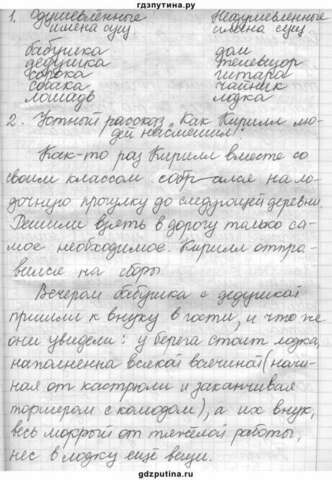 гдзпутина.ру
1. Одушевлённые Неодушевлённые
имена сущ. имена сущ.
бабушка дом
дедушка телевизор
сорока гитара
собака чайник
лошадь лодка
2. Устный рассказ „Как Кирилл лю-
дей насмешил".
Как-то раз Кирилл вместе со
своим классом собрался на ло-
дочную прогулку до следующей деревни.
Решили взять в дорогу только са-
мое необходимое. Кирилл отпра-
вился на сборы.
Вечером бабушка с дедушкой
пришли к внуку в гости, и что же
они увидели: у берега стоит лодка,
наполненна всякой всячиной (начи-
ная от кастрюли и заканчивая
торшером с комодом), а их внук,
весь мокрый от тяжёлой работы,
нёс в лодку ещё вещи.
gdzputina.ru